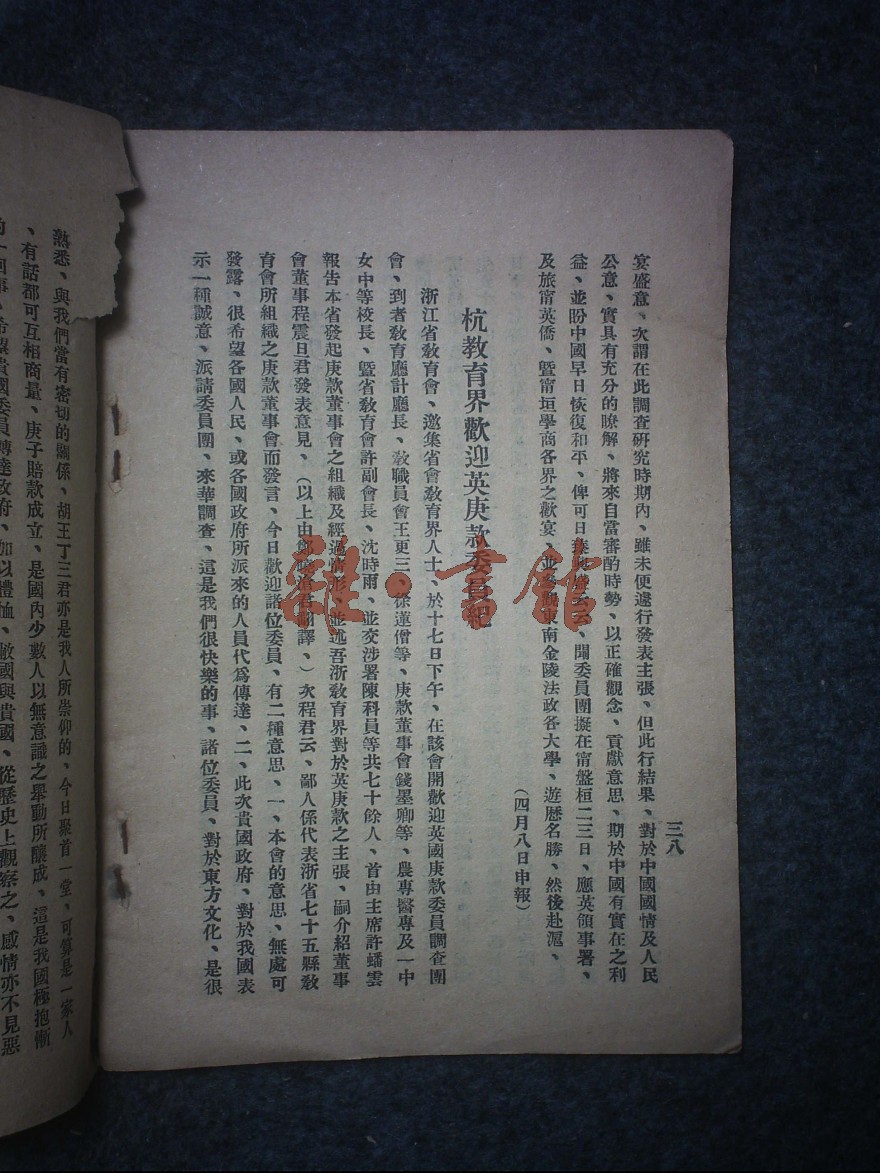 三八
宴盛意、次謂在此調查硏究時期內、雖未便遽行發表主張、但此行結果、對於中國國情及人民
公意、實具有充分的瞭解、將來自當審酌時勢、以正確觀念、貢獻意思、期於中國有實在之利
益、並盼中國早日恢復和平、俾可日臻興盛云云、聞委員團擬在甯盤桓二三日、應英領事署、
及旅甯英僑、曁甯垣學商各界之歡宴、並參觀東南金陵法政各大學、遊歷名勝、然後赴滬、
(四月八日申報)
杭教育界歡迎英庚款委員紀
浙江省敎育會、邀集省會敎育界人士、於十七日下午、在該會開歡迎英國庚款委員調查團
會、到者敎育廳計廳長、敎職員會王更三、徐蘧僧等、庚款董事會錢墨卿等、農專醫專及一中
女中等校長、曁省敎育會許副會長、沈時雨、並交涉署陳科員等共七十餘人、首由主席許蟠雲
報吿本省發起庚款董事會之組織及經過情形、並述吾浙敎育界對於英庚款之主張、嗣介紹董事
會董事程震旦君發表意見、(以上由鄭曉滄君翻譯、)次程君云、鄙人係代表浙省七十五縣敎
育會所組織之庚款董事會而發言、今日歡迎諸位委員、有二種意思、一、本會的意思、無處可
發露、很希望各國人民、或各國政府所派來的人員代爲傳達、二、此次貴國政府、對於我國表
示一種誠意、派請委員團、來華調查、這是我們很快樂的事、諸位委員、對於東方文化、是很
熟悉、與我們當有密切的關係、胡王丁三君亦是我人所崇仰的、今日聚首一堂、可算是一家人
、有話都可互相商量、庚子賠款成立、是國內少數人以無意識之舉動所釀成、這是我國極抱慚
的一回事、希望貴國委員轉達政府、加以體恤、敝國與貴國、從歷史上觀察之、感情亦不見惡
雜·書館